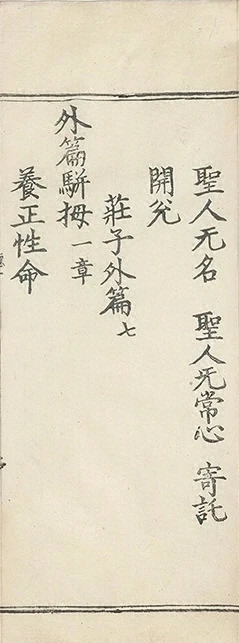 聖人无名 聖人旡常心 寄託
開兊
莊子外篇七
外篇駢拇一章
養正性命